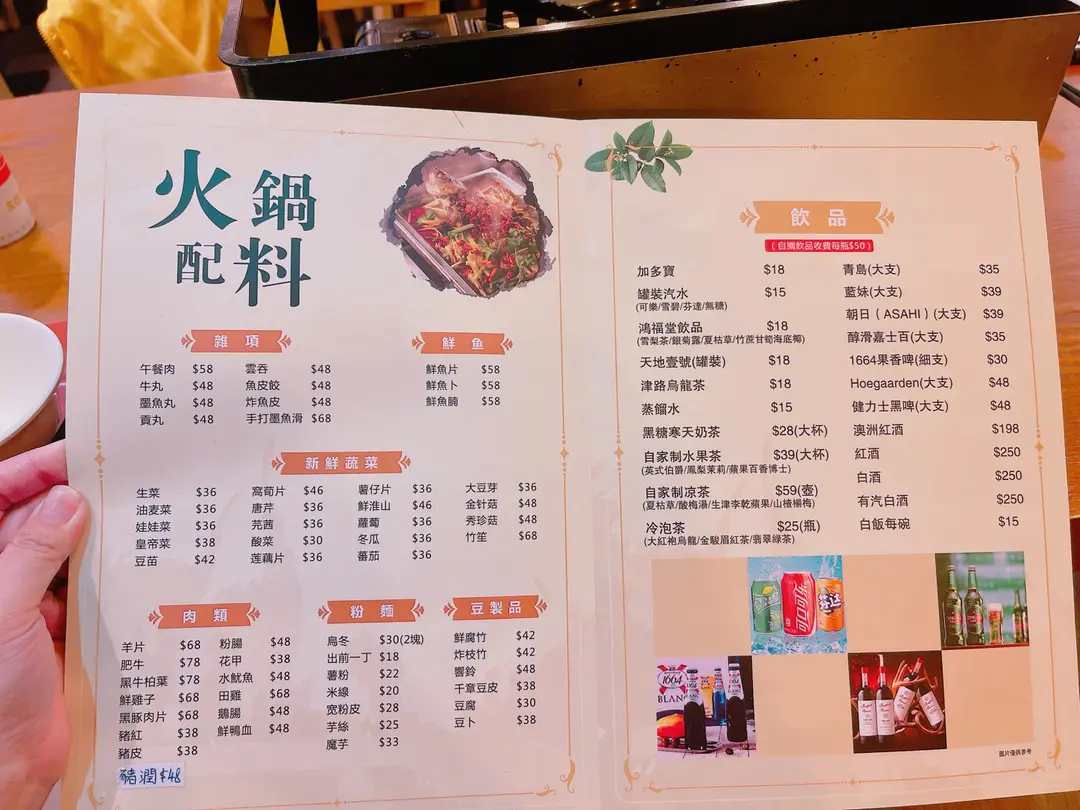 火鍋
配料
雜項
午餐肉 $58 雲吞 $48
牛丸 $48 魚皮餃 $48
墨魚丸 $48 炸魚皮 $48
貢丸 $48 手打墨魚滑 $68
鮮魚
鮮魚片 $58
鮮魚卜 $58
鮮魚腩 $58
新鮮蔬菜
生菜 $36 窩荀片 $46 薯仔片 $36 大豆芽 $36
油麦菜 $36 唐芹 $36 鮮淮山 $46 金針菇 $48
娃娃菜 $36 芫茜 $36 蘿蔔 $36 秀珍菇 $48
皇帝菜 $38 酸菜 $30 冬瓜 $36 竹笙 $68
豆苗 $42 莲藕片 $36 蕃茄 $36
肉類
羊片 $68 粉腸 $48
肥牛 $78 花甲 $38
黑牛柏葉 $78 水魷魚 $48
鮮雞子 $68 田雞 $68
黑豚肉片 $68 鵝腸 $48
豬紅 $38 鮮鴨血 $48
豬皮 $38
豬潤 $48
粉麵
烏冬 $30(2塊)
出前一丁 $18
薯粉 $22
米線 $20
宽粉皮 $28
芋絲 $25
魔芋 $33
豆製品
鮮腐竹 $42
炸枝竹 $42
響鈴 $48
千章豆皮 $38
豆腐 $30
豆卜 $38
飲品
(自攜飲品收費每瓶$50)
加多寶 $18
罐裝汽水 $15
(可樂/雪碧/芬達/無糖)
鴻福堂飲品 $18
(雪梨茶/銀菊露/夏枯草/竹蔗甘筍海底椰)
天地壹號(罐裝) $18
津路烏龍茶 $18
蒸餾水 $15
黑糖寒天奶茶 $28(大杯)
自家制水果茶 $39(大杯)
(英式伯爵/鳳梨茉莉/蘋果百香博士)
自家制凉茶 $59(壺)
(夏枯草/酸梅湯/生津李乾蘋果/山楂楊梅)
冷泡茶 $25(瓶)
(大紅袍烏龍/金駿眉紅茶/翡翠綠茶)
青島(大支) $35
藍妹(大支) $39
朝日(ASAHI)(大支) $39
醇滑嘉士百(大支) $35
1664果香啤(細支) $30
Hoegaarden(大支) $48
健力士黑啤(大支) $48
澳洲紅酒 $198
紅酒 $250
白酒 $250
有汽白酒 $250
白飯每碗 $15
芬达
1664
BLANC
圖片僅供參考